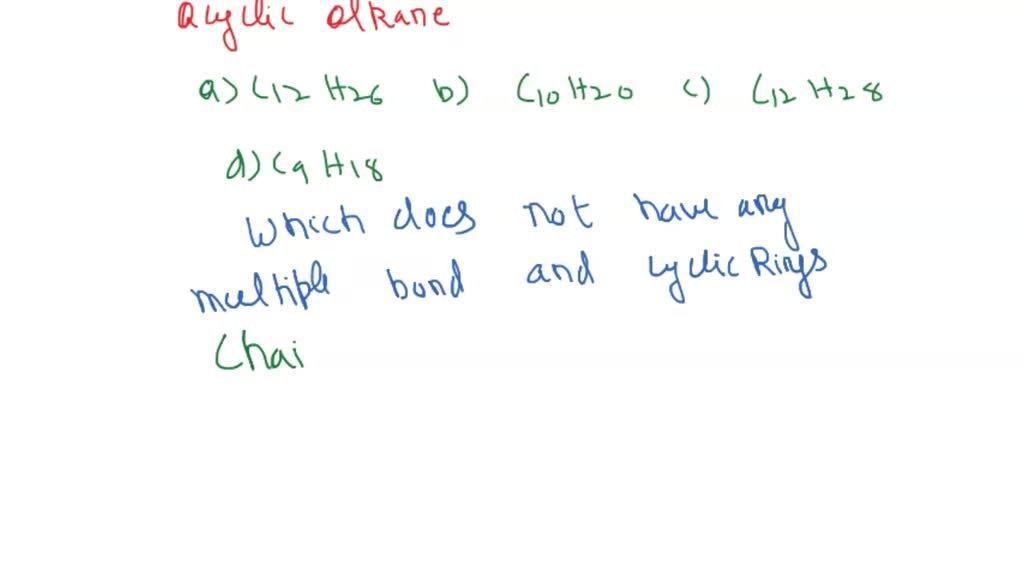 acyclic alkane
a) C12 H26 b) C10 H20 c) C12 H28
d) C9 H18
Which does not have any
multiple bond and cyclic Rings
Chai